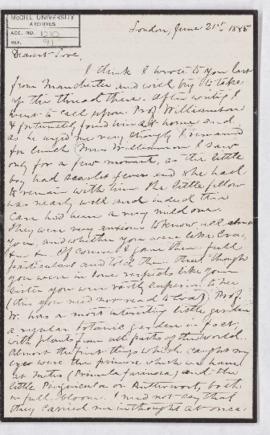 McGILL UNIVERSITY
ARCHIVES
ACC. NO. 1210
REF. 91
London, June 21st 1885
Dearest Love.
I think I wrote to you last
from Manchester and will try to take
up the thread there. After writing I
went to call upon Prof Williamson
& fortunately found him at home and
as he urged me very strongly I remained
for lunch. Mrs Williamson I saw
only for a few moments, as the little
boy had scarlet fever and she had
to remain with him. The little fellow
was nearly well and indeed the
case had been a very mild one.
They were very anxious to know all about
you, and whether you were like Eva,
&c &c. Of course I gave them full
particulars and told them that though
you were in some respects like your
sister you were vastly superior to her
(this you need not read to Eva). Prof.
W. has a most interesting little garden
a regular botanic garden in fact,
with plants from all parts of the world.
Almost the first things which caught my
eyes were the primrose which we have
at Metis (Primula farinosa) and the
little Pinguicula or Butterwort, both
in full bloom. I need not say that
they carried me in thought at once